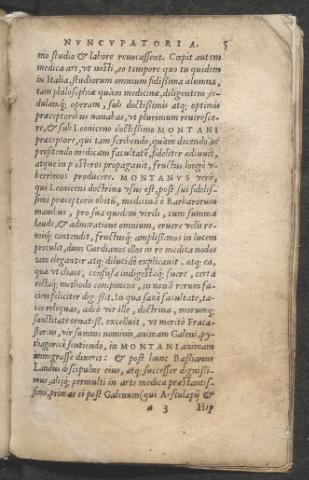 NVNCVPATORIA. 5
mo studio & labore reuocassent. Cœpit autem
medica ars, vt nosti, eo tempore quo tu quidem
in Italia, studiorum omnium fidissima alumna,
tam philosophiæ quàm medicinæ, diligentem se-
dulamq; operam, sub doctissimis atq; optimis
præceptoribus nauabas, vt plurimùm reuiresce-
re, & sub Leoniceno doctissimo MONTANI
præceptore, qui tam scribendo, quàm docendo ac
profitendo medicam facultatē, fideliter adiuuit,
atque in posteros propagauit, fructus longè v-
berrimos producere. MONTANVS verò,
qui Leoniceni doctrina vsus est, post sui fidelis-
simi præceptoris obitū, medicinā è Barbarorum
manibus, pro sua quidem virili, cum summa
laude, & admiratione omnium, eruere velut re-
mūq; contendit, fructusq; amplissimos in lucem
protulit, dum Gordianos illos in re medica nodos
tam eleganter atq; dilucidè explicauit, atq; ea,
quæ vt chaos, confusa indigestaq; fuere, certa
rectaq; methodo componens, in nouā rerum fa-
ciem feliciter digessit. In qua sanè facultate, ta-
ceo reliquas, adeò vir ille, doctrina, morumq;
sanctitate ornatiss. excelluit, vt meritò Fraca-
storius, vir summi nominis, animam Galeni, py-
thagoricè sentiendo, in MONTANI animam
immigrasse dixerit: & post hunc Bassianus
Landus discipulus eius, atq; successor dignissi-
mus, alijq; permulti in arte medica præstantis-
simi, primas ei post Galenum (qui Aesculapij &
a 3 Hip